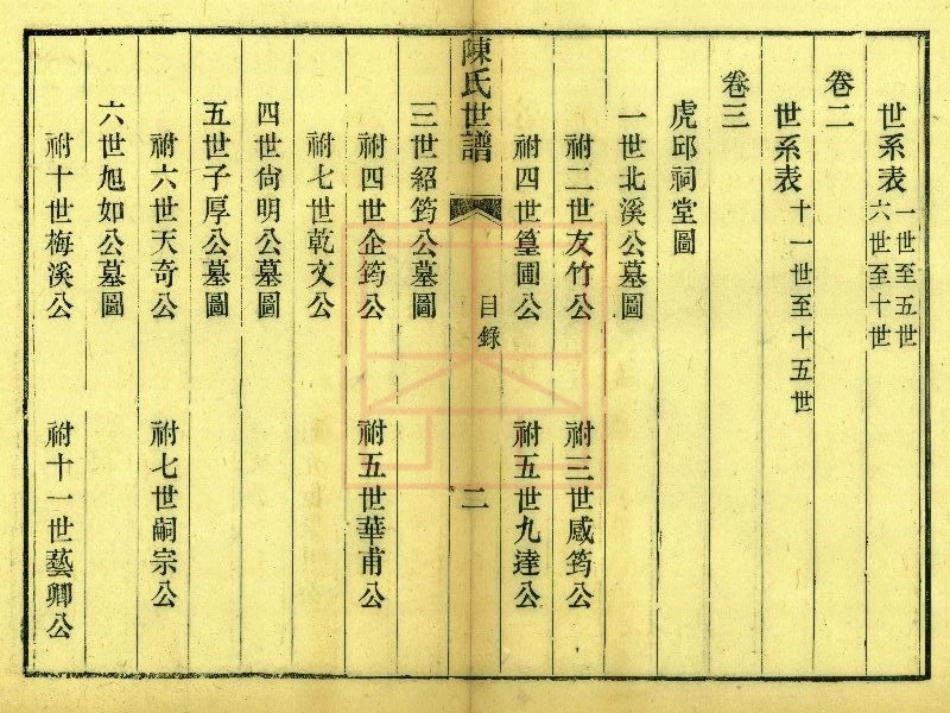 世系表 一世至五世
六世至十世
卷二
世系表 十一世至十五世
卷三
虎邱祠堂圖
一世北溪公墓圖
祔二世友竹公 祔三世感筠公
祔四世篁圃公 祔五世九逵公
陳氏世譜 目錄 二
三世紹筠公墓圖
祔四世企筠公 祔五世華甫公
祔七世乾文公
四世尙明公墓圖
五世子厚公墓圖
祔六世天奇公 祔七世嗣宗公
六世旭如公墓圖
祔十世梅溪公 祔十一世藝卿公